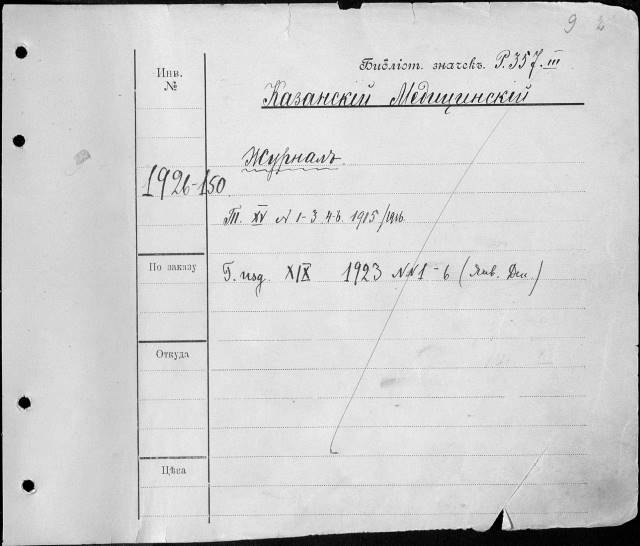 9 2
Библіот. значекъ. Р.357.III
Инв.
№
Казанскій Медицинскій
Журналъ
1926-150
Т. XV № 1-3 4-6 1915/1916
По заказу
Г. изд. XIX 1923 №№1-6 (Янв. Дек.)
Откуда
Цѣна